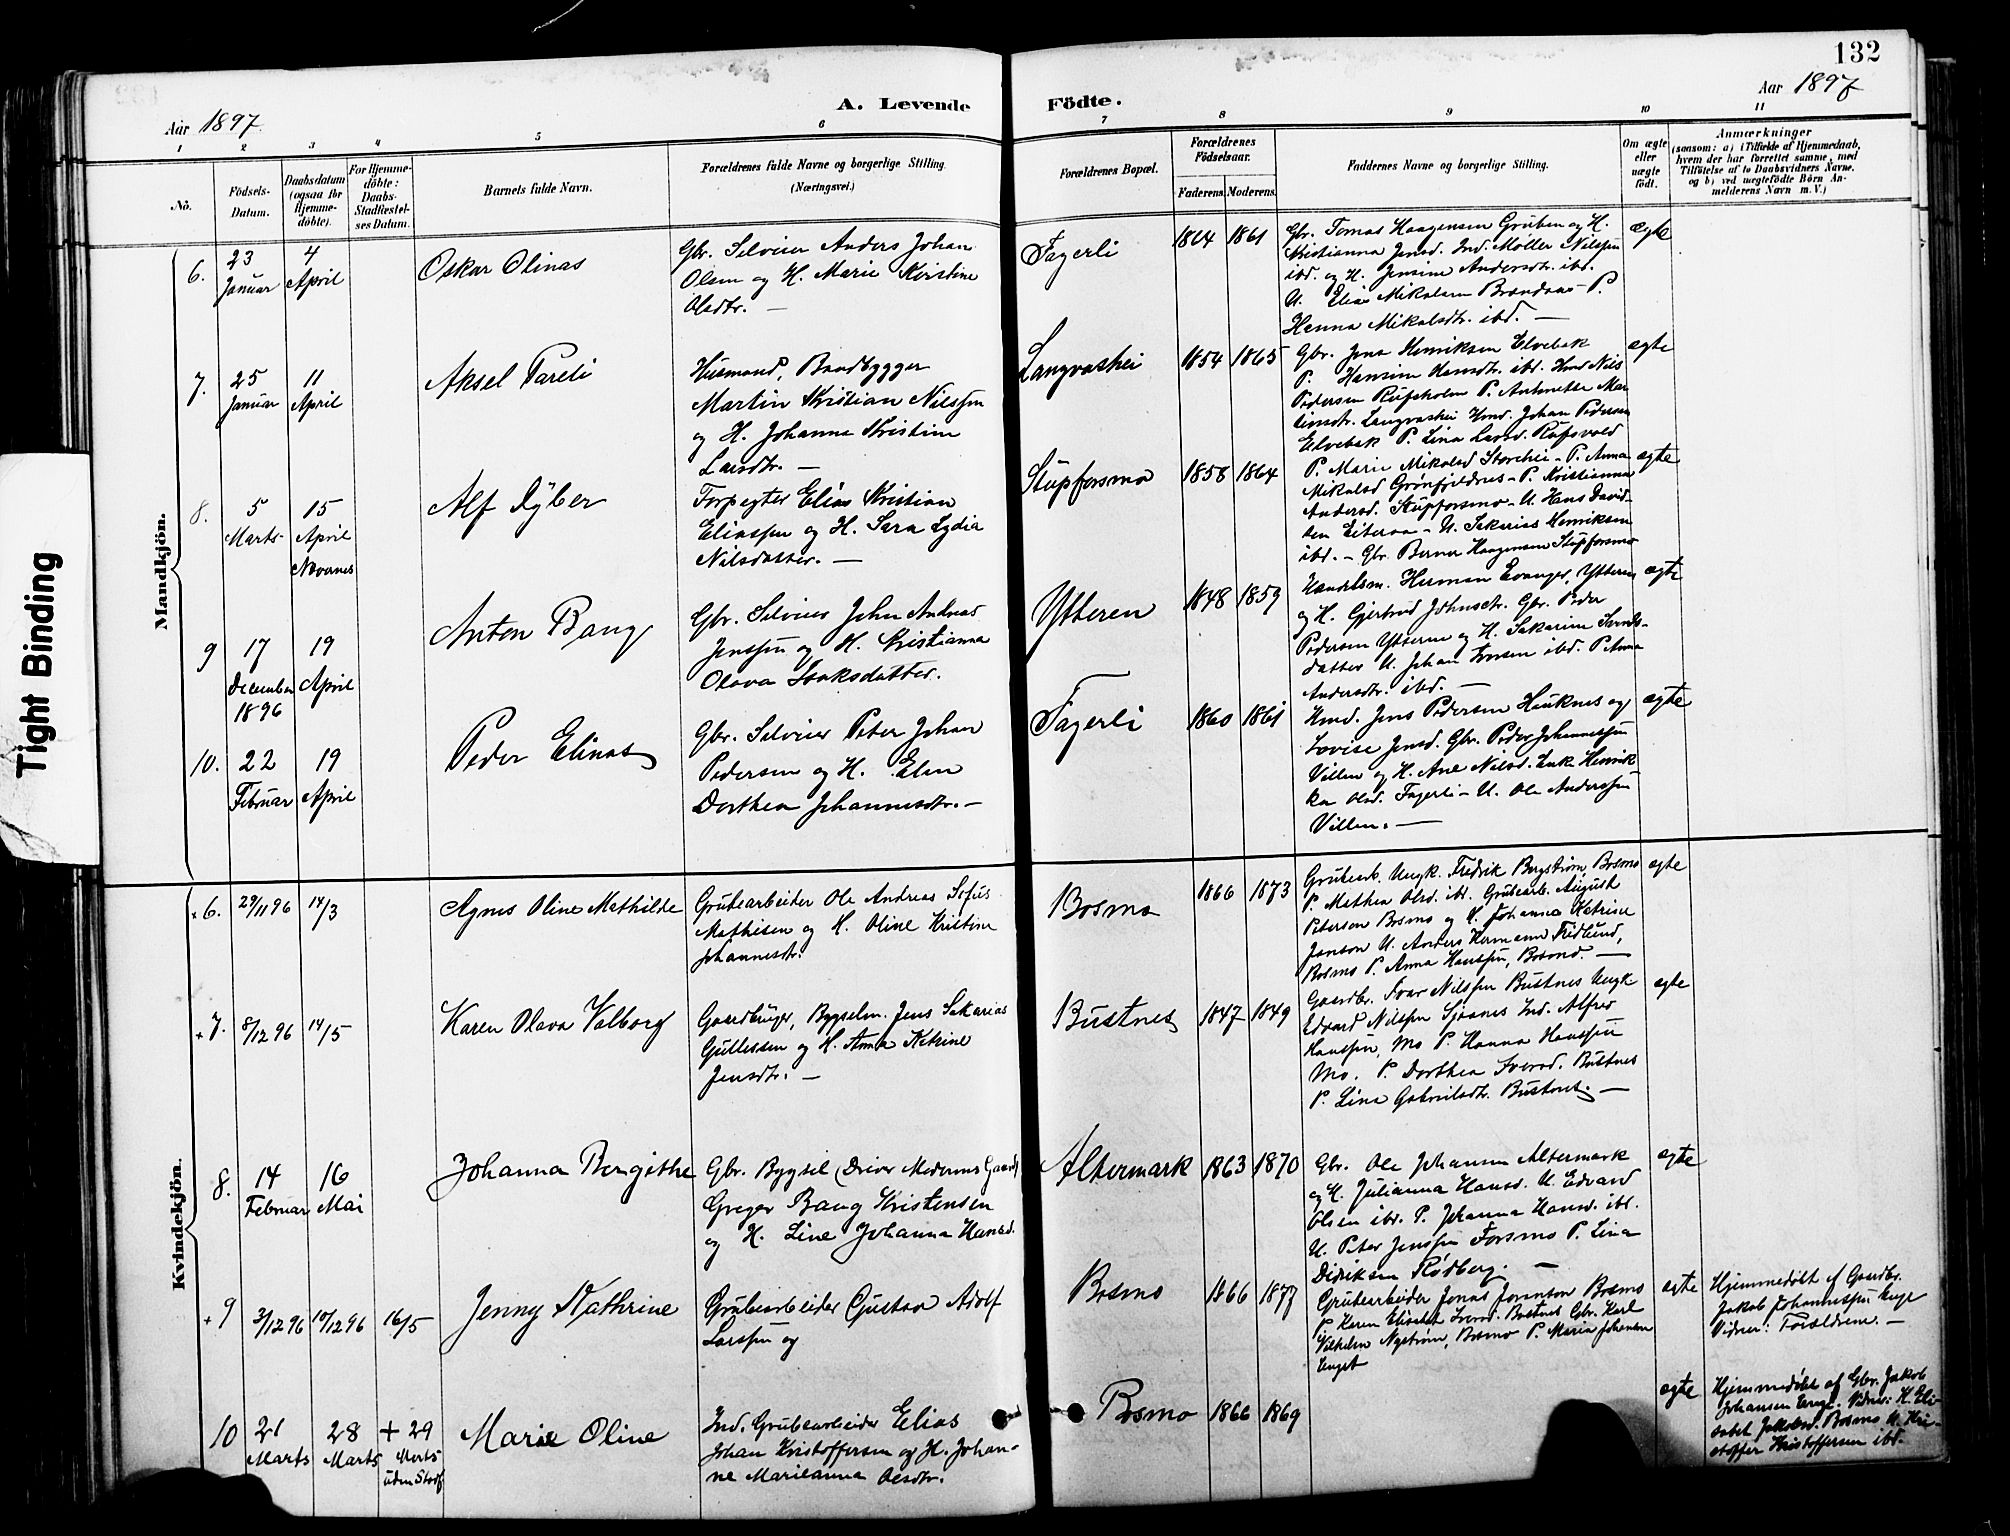 132
Aar 1897.
A. Levende
Födte.
Aar 1897
1 2 3 4 5 6 7 8 9 10 11
No.
Födsels-
Datum.
Daabsdatum
(ogsaa for
Hjemme-
döbte).
For Hjemme-
döbte:
Daabs-
Stadfæstel-
ses Datum.
Barnets fulde Navn.
Forældrenes fulde Navne og borgerlige Stilling.
(Næringsvei.)
Forældrenes Bopæl.
Forældrenes
Födselsaar.
Faderens. Moderens.
Faddernes Navne og borgerlige Stilling.
Om ægte
eller
uægte
födt.
Anmærkninger
(saasom: a) i Tilfælde af Hjemmedaab,
hvem der har forrettet samme, med
Tilföielse af to Daabsvidners Navne,
og b) ved uægtefödte Börn An-
melderens Navn m. V.)
Tight Binding
Mandkjön.
6.
23
Januar
4
April
Oskar Olinas
Gbr. Selveier Anders Johan
Olsen og H. Marie Kristine
Olsdtr. —
Fagerli
1864 1861
Gbr. Tomas Haagensen Gruben og H.
Kristianna Jensd. Ind. Möller Nilssen
ibd. og H. Jensine Andersdtr. ibd.
U. Elias Mikalsen Brendaas P.
Hanna Mikalsdtr. ibd. —
ægte
7.
25
Januar
11
April
Aksel Pareli
Husmand, Baadbygger
Martin Kristian Nilssen
og H. Johanna Kristine
Larsdtr. —
Langvashei
1854 1865
Gbr. Jens Henriksen Elvebak
P. Hansine Hansdtr. ibd. Hmd Nils
Pedersen P. Antonette Mar
tinsdtr. Langvashei Hmd. Johan Pedersen
Elvebak P. Lina Larsd.
ægte
8.
5
Marts
15
April
Nævernes
Alf Dyber
Forpagter Elias Kristian
Eliassen og H. Sara Lydia
Nilsdatter. —
Stupforsmo
1858 1864
P. Marie Mikalsd Storhei – P. Anna
Mikalsd Grönfjeldnes – P. Kristianna
Andersd. Stupforsmo – U. Hans David-
sen Eiteraa – U. Sakarias Henriksen
ibd. – Gbr. Berner Haagensen Stupforsmo
ægte
9
17
December
1896
19
April
Anton Bang
Gbr. Selveier John Andreas
Jenssen og H. Kristianna
Olava Isaksdatter.
Ytteren
1848 1859
Handelsm. Herman Evanger, Ytteren
og H. Gjertrud Johnsdtr. Gbr. Peder
Pedersen Ytteren og H. Sakarine
datter U. Johan Iversen ibd. P. Anna
Andersdtr. ibd. —
ægte
10.
22
Februar
19
April
Peder Elinas
Gbr. Selveier Peter Johan
Pedersen og H. Elen
Dorthea Johannesdtr. —
Fagerli
1860 1861
Hmd. Jens Pedersen Hauknes og
Lovise Jensd. Gbr. Peder Johannessen
Villen og H. Ane Nilsd. Enk Henrik
ka Olsd. Fagerli – U. Ole Anderssen
Villen. —
ægte
Kvindekjön.
+ 6.
29/11 96
14/3
Agnes Oline Mathilde
Grubearbeider Ole Andreas Sofus
Mathisen og H. Oline Kristine
Johannesdtr.
Bosmo
1866 1873
Grubearb. Ungk. Fredrik Bergström, Bosmo
P. Mathea Olsd. ibd. Grubearb. August
Peterson Bosmo og H. Johanna Katrine
Janson U. Anders Hermann Fredlund,
Bosmo P. Anna Hanssen, Bosmo. —
ægte
+ 7.
8/12 96
14/5
Karen Olava Valborg
Gaardbruger, Bygselm. Jens Sakarias
Gullessen og H. Anna Katrine
Jensdtr. —
Bustnes
1847 1849
Gaardbr. Ivar Nilssen Bustnes Ungk
Edvard Nilssen Sjaanes Ind. Alfred
Hanssen, Mo P. Hanna Hanssen
Mo. P. Dorthea Iversd. Bustnes
P. Lina Gabrielsdtr. Bustnes. —
ægte
8.
14
Februar
16
Mai
Johanna Bergithe
Gbr. Bygsel (Driver Moderens Gaard)
Greger Bang Kristensen
og H. Line Johanna Hansd.
Altermark
1863 1870
Gbr. Ole Johansen Altermark
og H. Julianna Hansd. U. Edvard
Olsen ibd. P. Johanna Hansd. ibd.
U. Peter Jenssen Forsmo P. Lina
Didriksen Rödberg. —
ægte
+ 9
3/12 96
10/12 96
16/5
Jenny Kathrine
Grubearbeider Gustav Adolf
Larssen og
Bosmo
1866 1877
Grubearbeider Jonas Joranson Bosmo
P. Karen Elisabet Iversd. Bustnes Gbr. Karl
Vilhelm Nyström, Bosmo P. Maria Johansen
Enget
ægte
Hjemmedöbt af Gaardbr.
Jakob Johannessen Enge
Vidner: Forældrene. —
10
21
Marts
28
Marts
+ 29
Marts
uden Stadf
Marie Oline
Ind. Grubearbeider Elias
Johan Kristoffersen og H. Johan-
ne Marieanna Olsdtr.
Bosmo
1866 1869
ægte
Hjemmedöbt af Gbr. Jakob
Johansen Enge. Vidner: H. Eli-
sabet Jakobsd. Bosmo U. Kri-
stoffer Kristoffersen ibd.